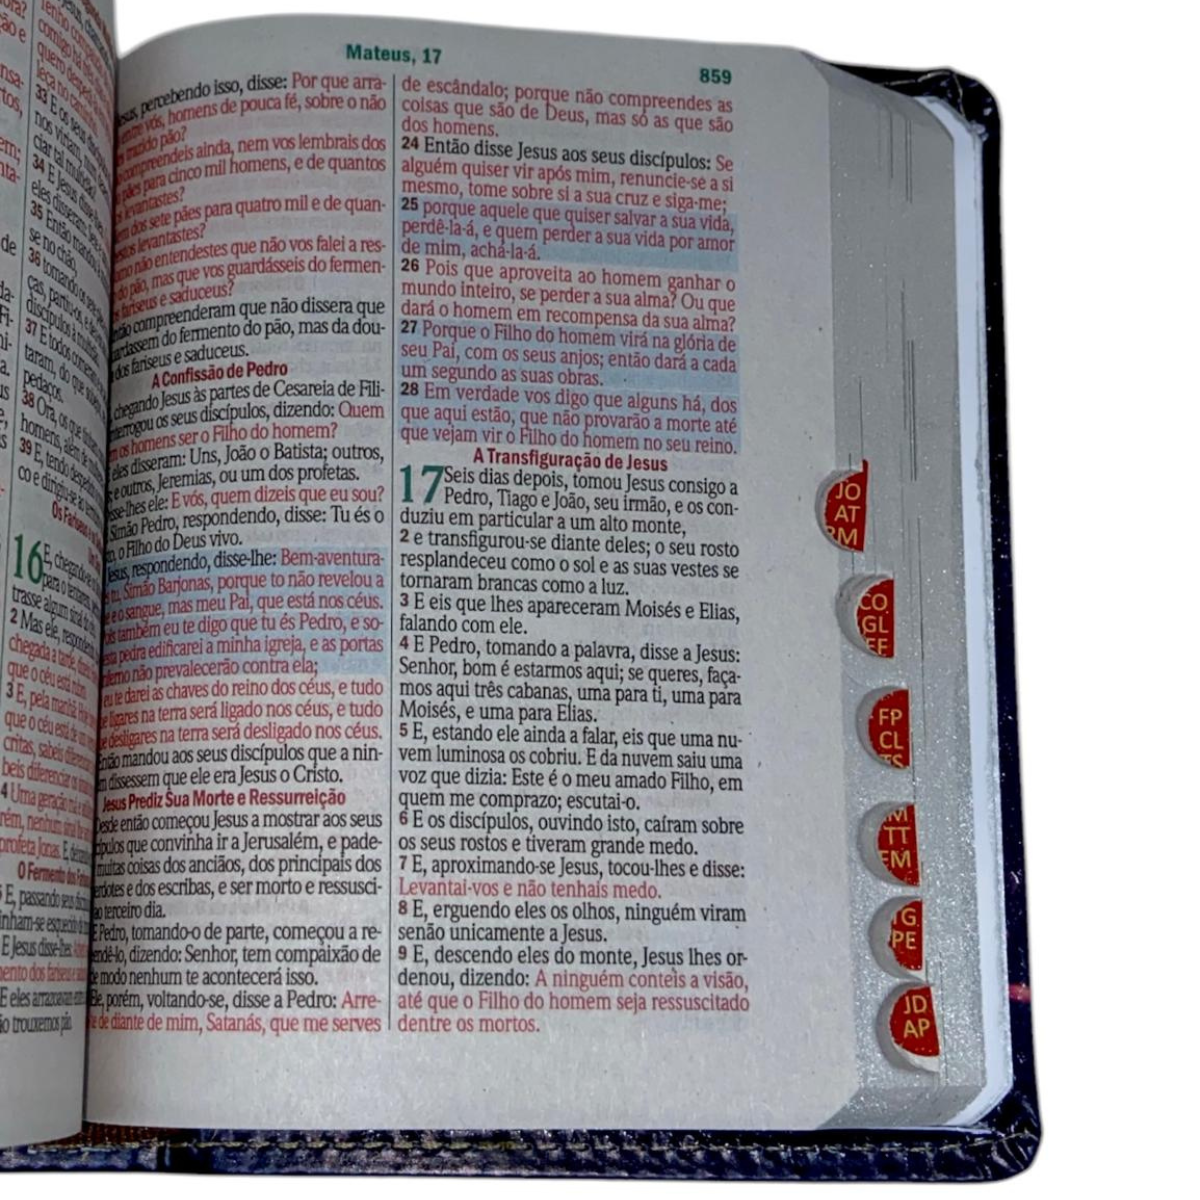 Mateus, 17
859
33 E os seus
nos viriam,
34 E Jesus
eles disseram:
35 Então
se no chão,
36 tomando os
ças, partiu-os, e
discípulos à
37 E todos
taram, do que
pedaços.
38 Ora, os que
homens, além de
39 E, tendo
co e dirigiu-se ao
16 E, chegando-se
para o
trasse algum sinal do
2 Mas ele,
chegada a tarde,
que o céu está
3 E, pela manhã:
que o céu está de um
critas, sabeis
beis diferenciar os
4 Uma geração má e
rém, nenhum sinal
profeta Jonas. E,
O Fermento dos
E, passando seus
nham-se esquecido de
E Jesus disse-lhes:
mento dos fariseus e
E eles arrazoavam
ão trouxemos pão.
percebendo isso, disse: Por que arra-
entre vós, homens de pouca fé, sobre o não
trazido pão?
compreendeis ainda, nem vos lembrais dos
pães para cinco mil homens, e de quantos
levantastes?
dos sete pães para quatro mil e de quan-
levantastes?
não entendestes que não vos falei a res-
do pão, mas que vos guardásseis do fermen-
fariseus e saduceus?
compreenderam que não dissera que
guardassem do fermento do pão, mas da dou-
dos fariseus e saduceus.
A Confissão de Pedro
chegando Jesus às partes de Cesareia de Fili-
interrogou os seus discípulos, dizendo: Quem
os homens ser o Filho do homem?
eles disseram: Uns, João o Batista; outros,
e outros, Jeremias, ou um dos profetas.
Disse-lhes ele: E vós, quem dizeis que eu sou?
Simão Pedro, respondendo, disse: Tu és o
o Filho do Deus vivo.
Jesus, respondendo, disse-lhe: Bem-aventura-
tu, Simão Barjonas, porque to não revelou a
e o sangue, mas meu Pai, que está nos céus.
também eu te digo que tu és Pedro, e so-
esta pedra edificarei a minha igreja, e as portas
inferno não prevalecerão contra ela;
eu te darei as chaves do reino dos céus, e tudo
ligares na terra será ligado nos céus, e tudo
desligares na terra será desligado nos céus.
Então mandou aos seus discípulos que a nin-
dissessem que ele era Jesus o Cristo.
Jesus Prediz Sua Morte e Ressurreição
Desde então começou Jesus a mostrar aos seus
discípulos que convinha ir a Jerusalém, e pade-
muitas coisas dos anciãos, dos principais dos
sacerdotes e dos escribas, e ser morto e ressusci-
ao terceiro dia.
E Pedro, tomando-o de parte, começou a re-
preendê-lo, dizendo: Senhor, tem compaixão de
modo nenhum te acontecerá isso.
Ele, porém, voltando-se, disse a Pedro: Arre-
de diante de mim, Satanás, que me serves
de escândalo; porque não compreendes as
coisas que são de Deus, mas só as que são
dos homens.
24 Então disse Jesus aos seus discípulos: Se
alguém quiser vir após mim, renuncie-se a si
mesmo, tome sobre si a sua cruz e siga-me;
25 porque aquele que quiser salvar a sua vida,
perdê-la-á, e quem perder a sua vida por amor
de mim, achá-la-á.
26 Pois que aproveita ao homem ganhar o
mundo inteiro, se perder a sua alma? Ou que
dará o homem em recompensa da sua alma?
27 Porque o Filho do homem virá na glória de
seu Pai, com os seus anjos; então dará a cada
um segundo as suas obras.
28 Em verdade vos digo que alguns há, dos
que aqui estão, que não provarão a morte até
que vejam vir o Filho do homem no seu reino.
A Transfiguração de Jesus
17 Seis dias depois, tomou Jesus consigo a
Pedro, Tiago e João, seu irmão, e os con-
duziu em particular a um alto monte,
2 e transfigurou-se diante deles; o seu rosto
resplandeceu como o sol e as suas vestes se
tornaram brancas como a luz.
3 E eis que lhes apareceram Moisés e Elias,
falando com ele.
4 E Pedro, tomando a palavra, disse a Jesus:
Senhor, bom é estarmos aqui; se queres, faça-
mos aqui três cabanas, uma para ti, uma para
Moisés, e uma para Elias.
5 E, estando ele ainda a falar, eis que uma nu-
vem luminosa os cobriu. E da nuvem saiu uma
voz que dizia: Este é o meu amado Filho, em
quem me comprazo; escutai-o.
6 E os discípulos, ouvindo isto, caíram sobre
os seus rostos e tiveram grande medo.
7 E, aproximando-se Jesus, tocou-lhes e disse:
Levantai-vos e não tenhais medo.
8 E, erguendo eles os olhos, ninguém viram
senão unicamente a Jesus.
9 E, descendo eles do monte, Jesus lhes or-
denou, dizendo: A ninguém conteis a visão,
até que o Filho do homem seja ressuscitado
dentre os mortos.
JO
AT
RM
CO
GL
EF
FP
CL
TS
TT
FM
PE
JD
AP